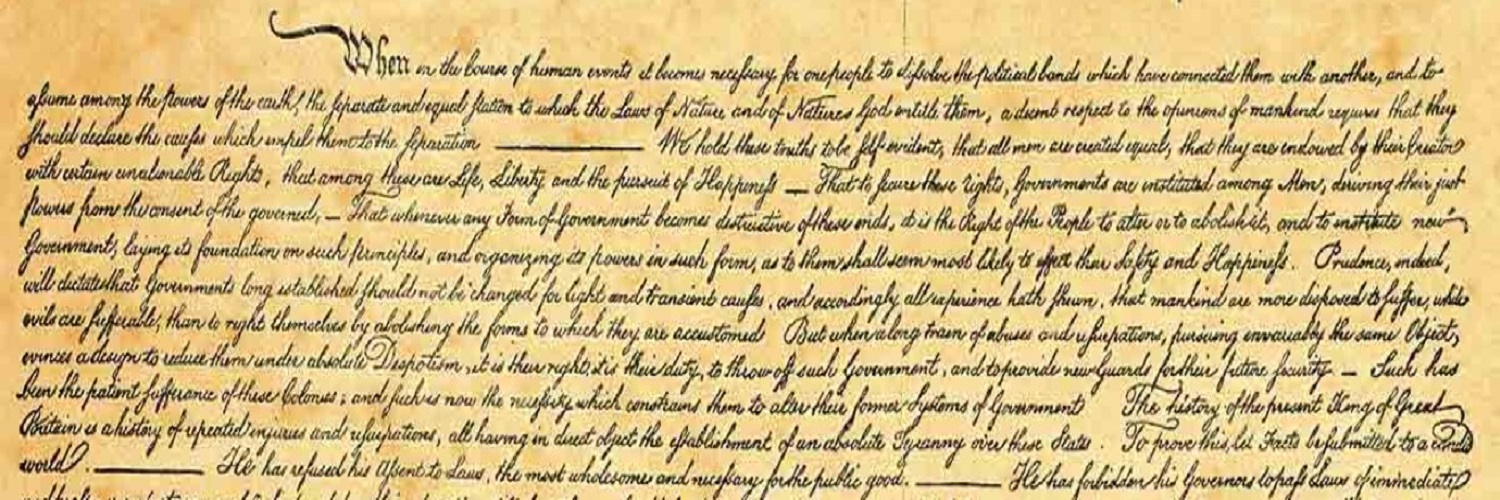 When in the Course of human events it becomes necessary for one people to dissolve the political bands which have connected them with another, and to
assume among the powers of the earth, the separate and equal station to which the Laws of Nature and of Nature's God entitle them, a decent respect to the opinions of mankind requires that they
should declare the causes which impel them to the separation ——— We hold these truths to be self-evident, that all men are created equal, that they are endowed by their Creator
with certain unalienable Rights, that among these are Life, Liberty and the pursuit of Happiness — That to secure these rights, Governments are instituted among Men, deriving their just
powers from the consent of the governed, — That whenever any Form of Government becomes destructive of these ends, it is the Right of the People to alter or to abolish it, and to institute new
Government, laying its foundation on such principles, and organizing its powers in such form, as to them shall seem most likely to effect their Safety and Happiness. Prudence, indeed,
will dictate that Governments long established should not be changed for light and transient causes, and accordingly all experience hath shewn, that mankind are more disposed to suffer, while
evils are sufferable, than to right themselves by abolishing the forms to which they are accustomed But when a long train of abuses and usurpations, pursuing invariably the same Object,
evinces a design to reduce them under absolute Despotism, it is their right, it is their duty, to throw off such Government, and to provide new Guards for their future security — Such has
been the patient sufferance of these Colonies; and such is now the necessity which constrains them to alter their former Systems of Government The history of the present King of Great
Britain is a history of repeated injuries and usurpations, all having in direct object the establishment of an absolute Tyranny over these States. To prove this, let Facts be submitted to a candid
world. ——— He has refused his Assent to Laws, the most wholesome and necessary for the public good. ——— He has forbidden his Governors to pass Laws of immediate